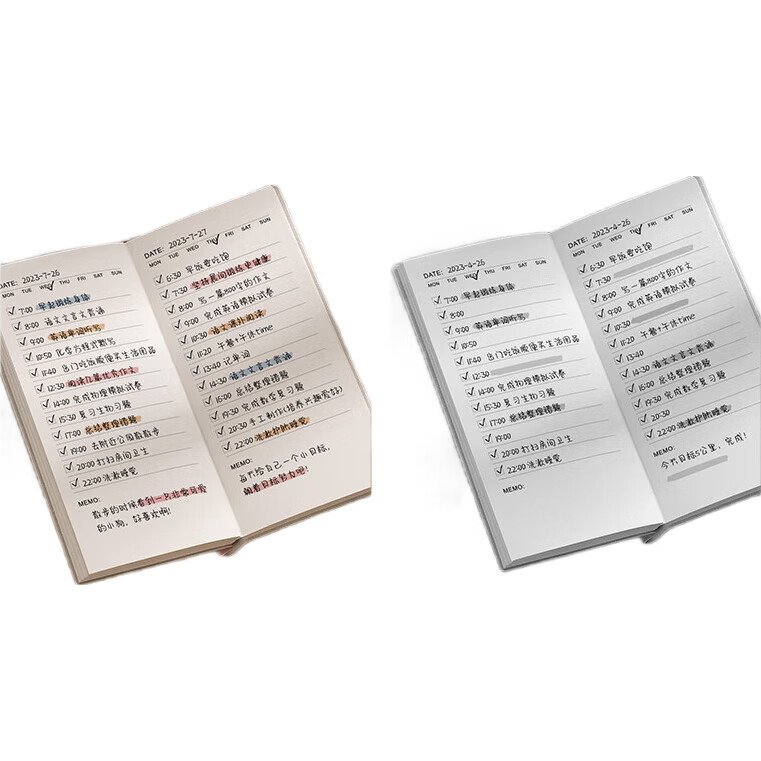 DATE: 2023-7-26
MON TUE WED THU FRI SAT SUN
7:00 早起锻炼身体
8:00 语文文言文背诵
9:00 英语单词听写
10:50 化学方程式默写
11:40 出门吃饭顺便买生活用品
12:30 阅读几篇优秀作文
14:00 完成物理模拟试卷
15:30 复习生物习题
17:00 总结整理错题
19:00 去附近公园散散步
20:00 打扫房间卫生
22:00 洗漱睡觉
MEMO:
散步的时候看到一只非常可爱
的小狗，好喜欢啊！
DATE: 2023-7-27
MON TUE WED THU FRI SAT SUN
6:30 早饭要吃饱
7:30 坚持晨间锻炼更健康
8:00 写一篇800字的作文
9:00 完成英语模拟试卷
10:30 语文课外阅读
11:20 午餐+午休time
13:40 记单词
14:30 语文文言文背诵
16:00 总结整理错题
19:30 完成数学复习题
20:30 手工制作(培养兴趣爱好)
22:00 洗漱护肤睡觉
MEMO:
每天给自己一个小目标，
朝着目标努力吧！
DATE: 2023-4-26
MON TUE WED THU FRI SAT SUN
7:00 早起锻炼身体
8:00
9:00 英语单词听写
10:50
11:40 出门吃饭顺便买生活用品
12:30
14:00 完成物理模拟试卷
15:30 复习生物习题
17:00 总结整理错题
19:00
20:00 打扫房间卫生
22:00 洗漱睡觉
MEMO:
DATE: 2023-4-26
MON TUE WED THU FRI SAT SUN
6:30 早饭要吃饱
7:30
8:00 写一篇800字的作文
9:00 完成英语模拟试卷
10:30
11:20 午餐+午休time
13:40
14:30 语文文言文背诵
16:00 总结整理错题
19:30 完成数学复习题
20:30
22:00 洗漱护肤睡觉
MEMO:
今天目标5公里，完成！